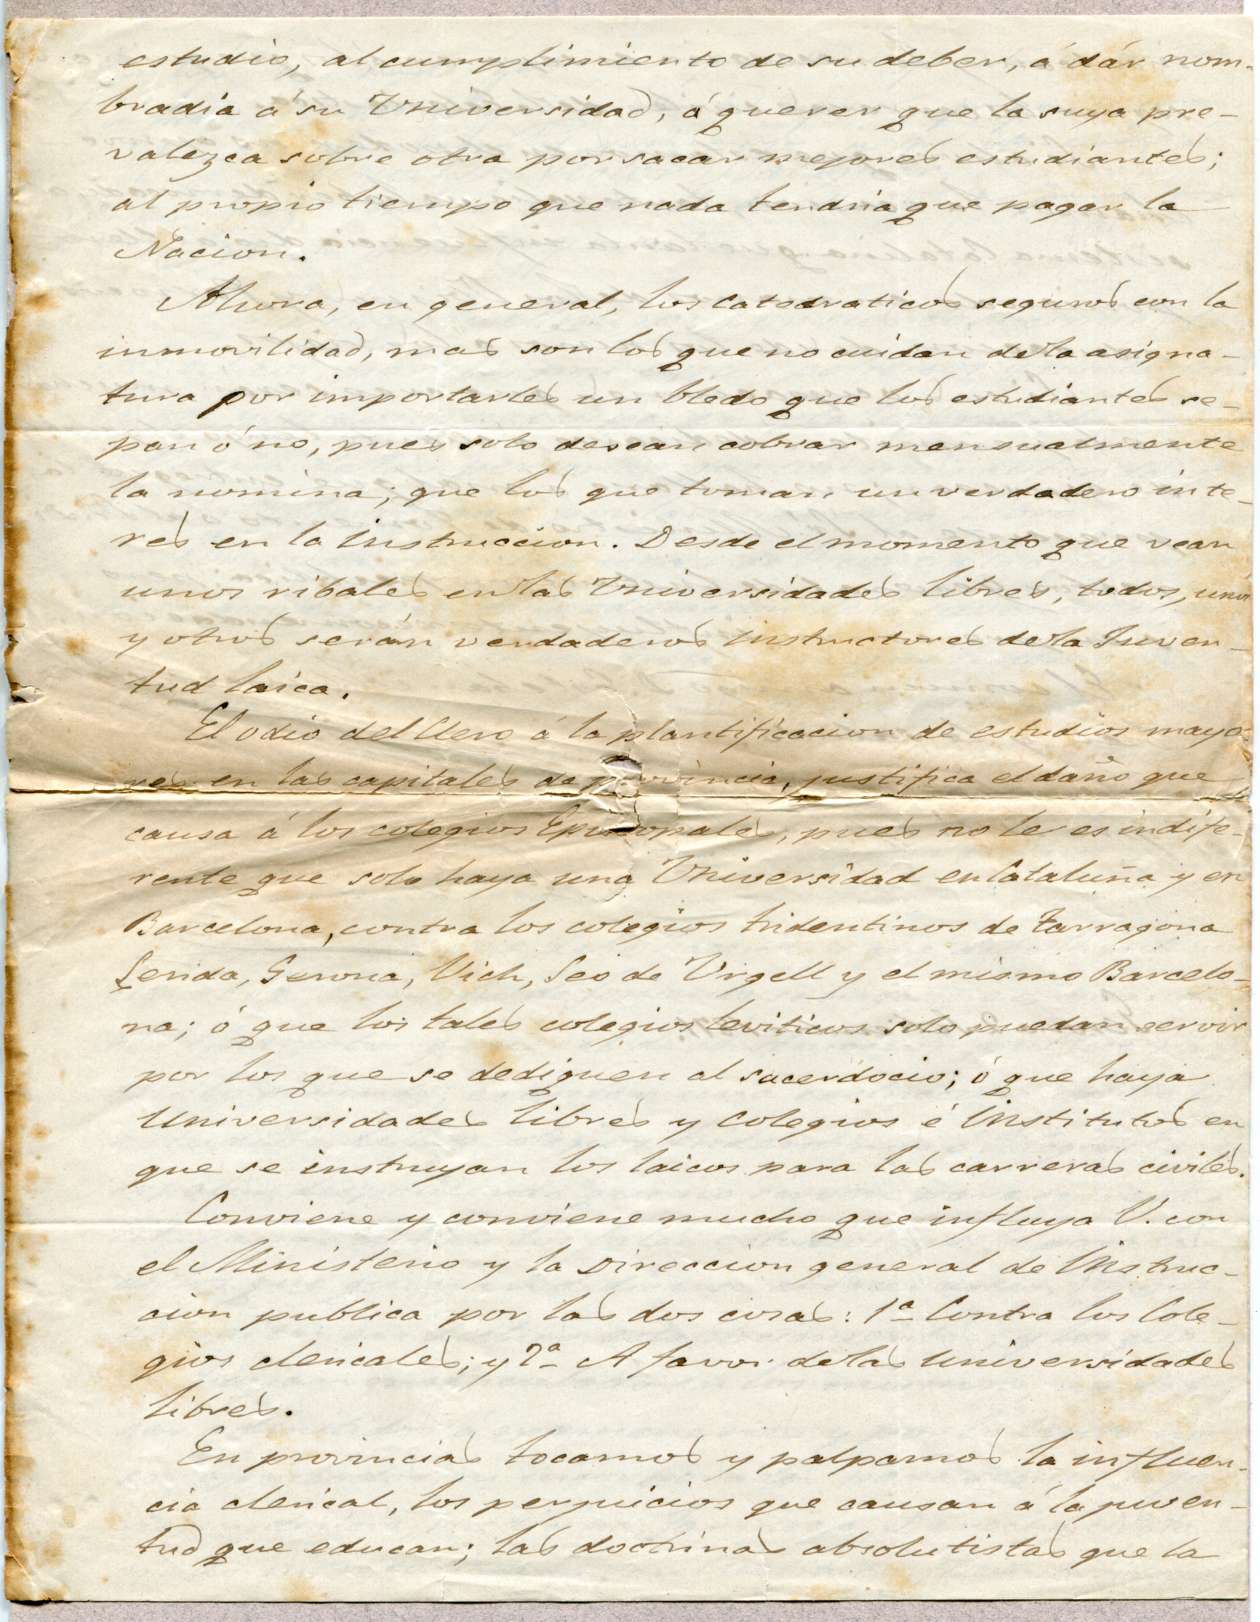 estudio, al cumplimiento de su deber, á dár nom-
bradia á su Universidad, á querer que la suya pre-
valezca sobre otra por sacar mejores estudiantes;
al propio tiempo que nada tendria que pagar la
Nacion.
Ahora, en general, los Catedraticos seguros con la
inmovilidad, mas son los que no cuidan de la asigna-
tura por importarles un bledo que los estudiantes se-
pan ó no, pues solo desean cobrar mensualmente
la nomina; que los que toman un verdadero inte-
res en la instruccion. Desde el momento que vean
unos ribales en las Universidades libres, todos, unos
y otros serán verdaderos instructores de la Juven-
tud laica.
El odio del Clero á la plantificacion de estudios mayo-
res en las capitales de provincia, justifica el daño que
causa á los colegios Episcopales, pues no le es indife-
rente que solo haya una Universidad en Cataluña y en
Barcelona, contra los colegios tridentinos de Tarragona
Lerida, Gerona, Vich, Seo de Urgell y el mismo Barcelo-
na; ó que los tales colegios leviticos solo puedan servir
por los que se dediquen al sacerdocio; ó que haya
Universidades libres y Colegios é Institutos en
que se instruyan los laicos para las carreras civiles.
Conviene y conviene mucho que influya V. con
el Ministerio y la Direccion general de Instruc-
cion publica por las dos cosas: 1ª Contra los Cole-
gios clericales; y 2ª A favor de las Universidades
libres.
En provincias tocamos y palpamos la influen-
cia clerical, los perjuicios que causan á la juven-
tud que educan; las doctrinas absolutistas que la